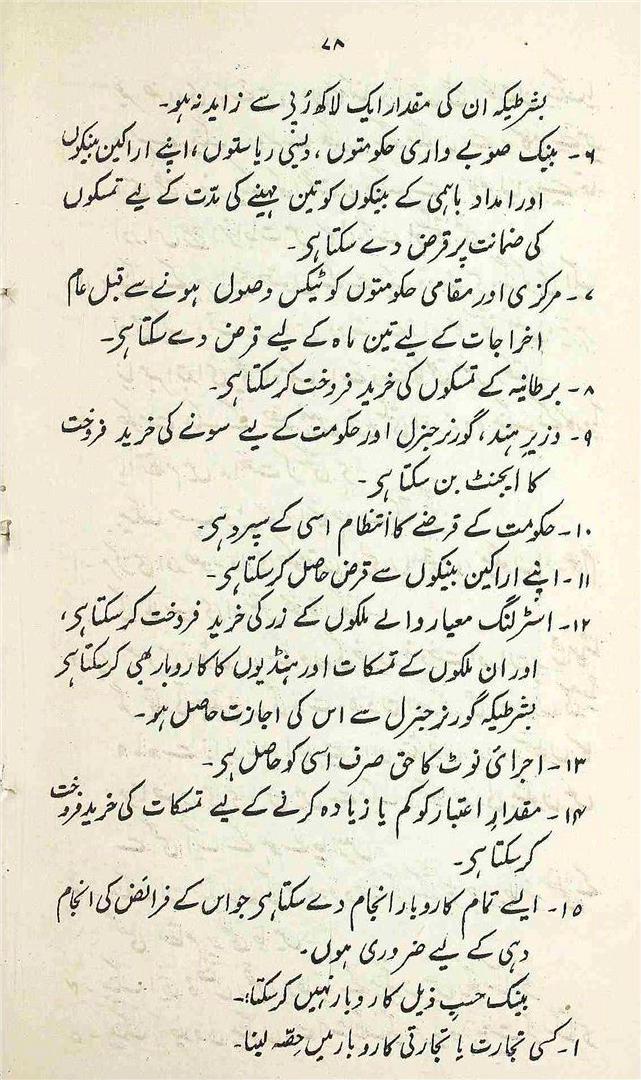 ۷۸
بشرطیکہ ان کی مقدار ایک لاکھ رُپی سے زاید نہ ہو۔
۶۔ بینک صوبے واری حکومتوں، دیسی ریاستوں، اپنے اراکین بینکوں
اور امداد باہمی کے بینکوں کو تین مہینے کی مدّت کے لیے تمسکوں
کی ضمانت پر قرض دے سکتا ہی۔
۷۔ مرکزی اور مقامی حکومتوں کو ٹیکس وصول ہونے سے قبل عام
اخراجات کے لیے تین ماہ کے لیے قرض دے سکتا ہی۔
۸۔ برطانیہ کے تمسکوں کی خرید فروخت کر سکتا ہی۔
۹۔ وزیرِ ہند، گورنر جنرل اور حکومت کے لیے سونے کی خرید فروخت
کا ایجنٹ بن سکتا ہی۔
۱۰۔ حکومت کے قرضے کا انتظام اسی کے سپرد ہی۔
۱۱۔ اپنے اراکین بینکوں سے قرض حاصل کر سکتا ہی۔
۱۲۔ اسٹرلنگ معیار والے ملکوں کے زر کی خرید فروخت کر سکتا ہی،
اور ان ملکوں کے تمسکات اور ہنڈیوں کا کاروبار بھی کر سکتا ہی
بشرطیکہ گورنر جنرل سے اس کی اجازت حاصل ہو۔
۱۳۔ اجرائ نوٹ کا حق صرف اسی کو حاصل ہی۔
۱۴۔ مقدارِ اعتبار کو کم یا زیادہ کرنے کے لیے تمسکات کی خرید فروخت
کر سکتا ہی۔
۱۵۔ ایسے تمام کاروبار انجام دے سکتا ہی جو اس کے فرائض کی انجام
دہی کے لیے ضروری ہوں۔
بینک حسبِ ذیل کاروبار نہیں کر سکتا:۔
۱۔ کسی تجارت یا تجارتی کاروبار میں حصّہ لینا۔